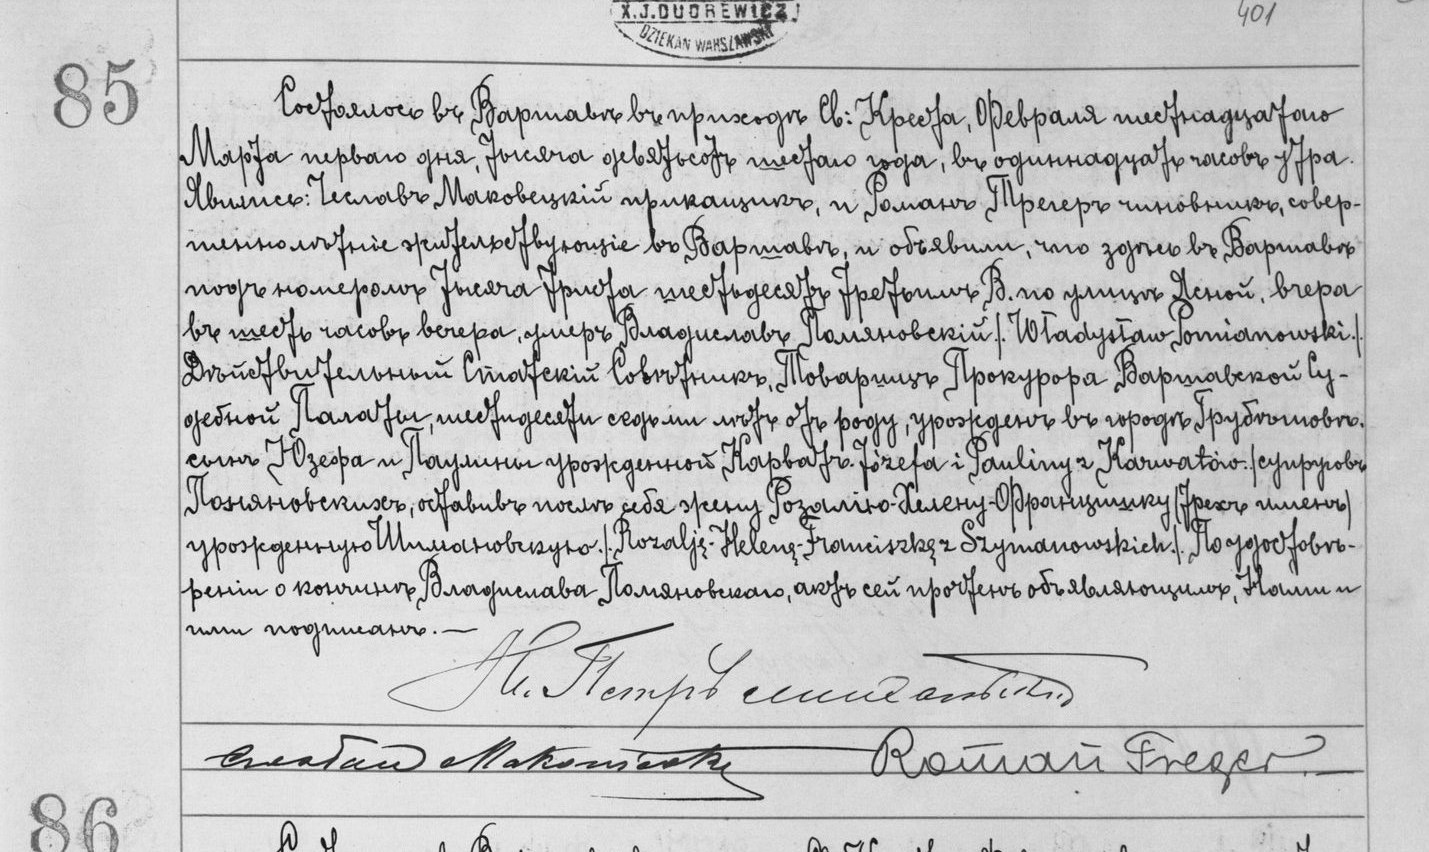 X.J.DUDREWICZ
DZIEKAN WARSZAWSKI
401
85
Состоялось въ Варшавѣ въ приходѣ Св: Креста, Февраля шестнадцатаго
Марта перваго дня, тысяча девятьсотъ шестаго года, въ одиннадцать часовъ утра.
Явились: Чеславъ Маковецкій прикащикъ, и Романъ Трегеръ чиновникъ, совер-
шеннолѣтніе жительствующіе въ Варшавѣ, и объявили, что здѣсь въ Варшавѣ
подъ номеромъ тысяча триста шестьдесятъ третьимъ В. по улицѣ Ясной, вчера
въ шесть часовъ вечера, умеръ Владиславъ Помяновскій /.Władysław Pomianowski./
Дѣйствительный Статскій Совѣтникъ, Товарищъ Прокурора Варшавской Су-
дебной Палаты, шестидесяти седьми лѣтъ отъ роду, урожденъ въ городѣ Грубешовѣ.
сынъ Юзефа и Паулины урожденной Карватъ. Józefa i Pauliny z Karwatów./супруговъ
Помяновскихъ, оставивъ послѣ себя жену Розалію-Хелену-Францишку /трехъ именъ/
урожденную Шимановскую./.Rozalję-Helenę-Franciszkę z Szymanowskich./. По удостовѣ-
реніи о кончинѣ Владислава Помяновскаго, актъ сей прочтенъ объявляющимъ, Нами и
ими подписанъ.—
Петръ
Czesław Makowiecki Roman Treger.—
86